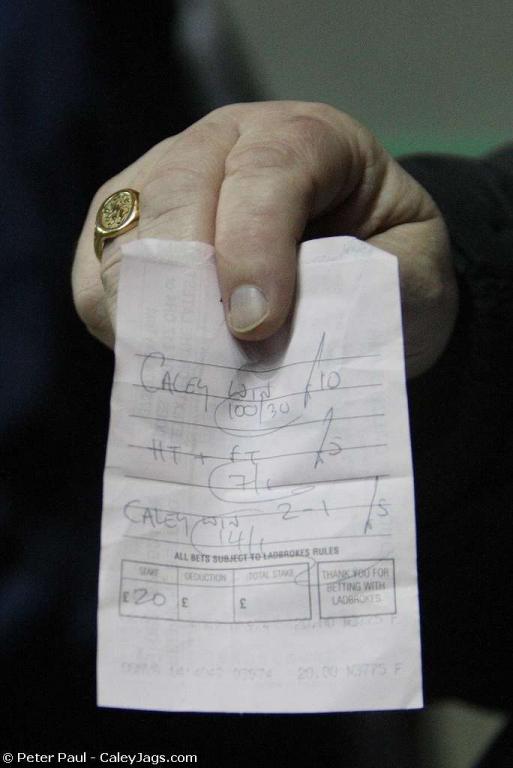 CALEY WIN /10
100/30
HT + FT /5
7/1
CALEY WIN 2-1 /5
14/1
ALL BETS SUBJECT TO LADBROKES RULES
STAKE DEDUCTION TOTAL STAKE
£20 £ £
THANK YOU FOR
BETTING WITH
LADBROKES
20.00 N3775 F
© Peter Paul - CaleyJags.com